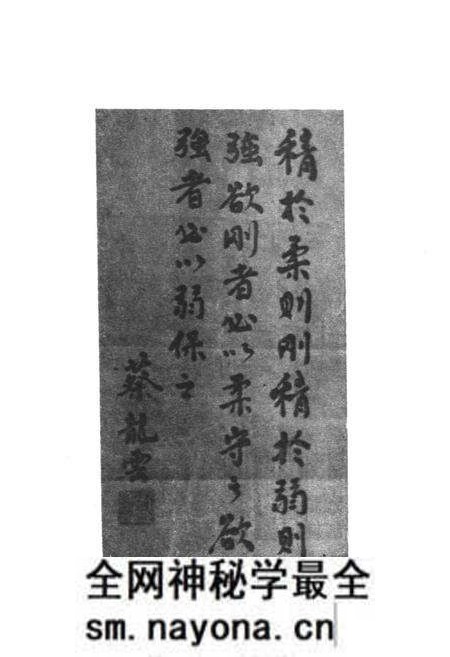 積於柔則剛積於弱則
強欲剛者必以柔守之欲
強者必以弱保之
蔡龍雲
全网神秘学最全
sm.nayona.cn